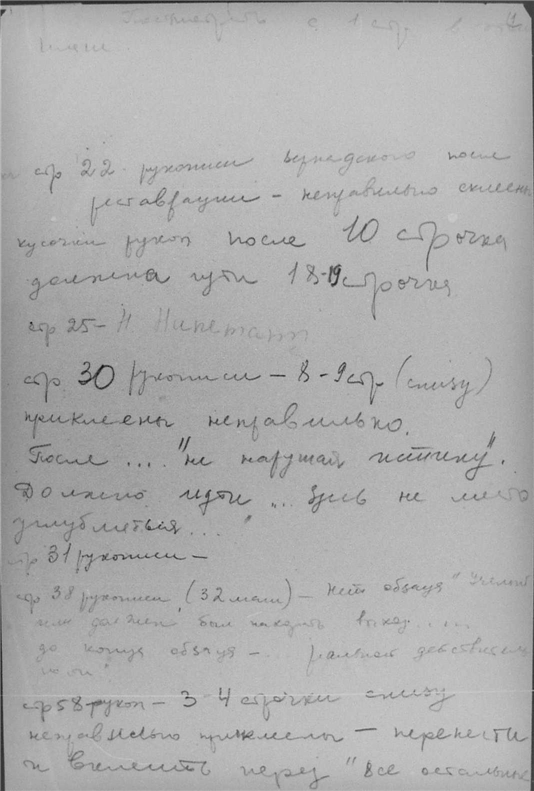 Посмотреть с 1 стр в
стр 22 рукописи Вернадского после
реставрации – неправильно склеены
кусочки рукоп после 10 строчка
должна идти 18-19 строчка
стр 25 – Н.
стр 30 рукописи – 8-9 стр (снизу)
приклеены неправильно.
После ... "не нарушая истину".
Должно идти „... Здесь не место
углубляться ...."
стр 31 рукописи –
стр 38 рукописи (32 маш) – нет абзаца "
или должен был находить выход .....
до конца абзаца – ... реальной действитель
ности"
стр 58 рукоп – 3-4 строчки снизу
неправильно приклеены – перенести
и вклеить перед "все остальные